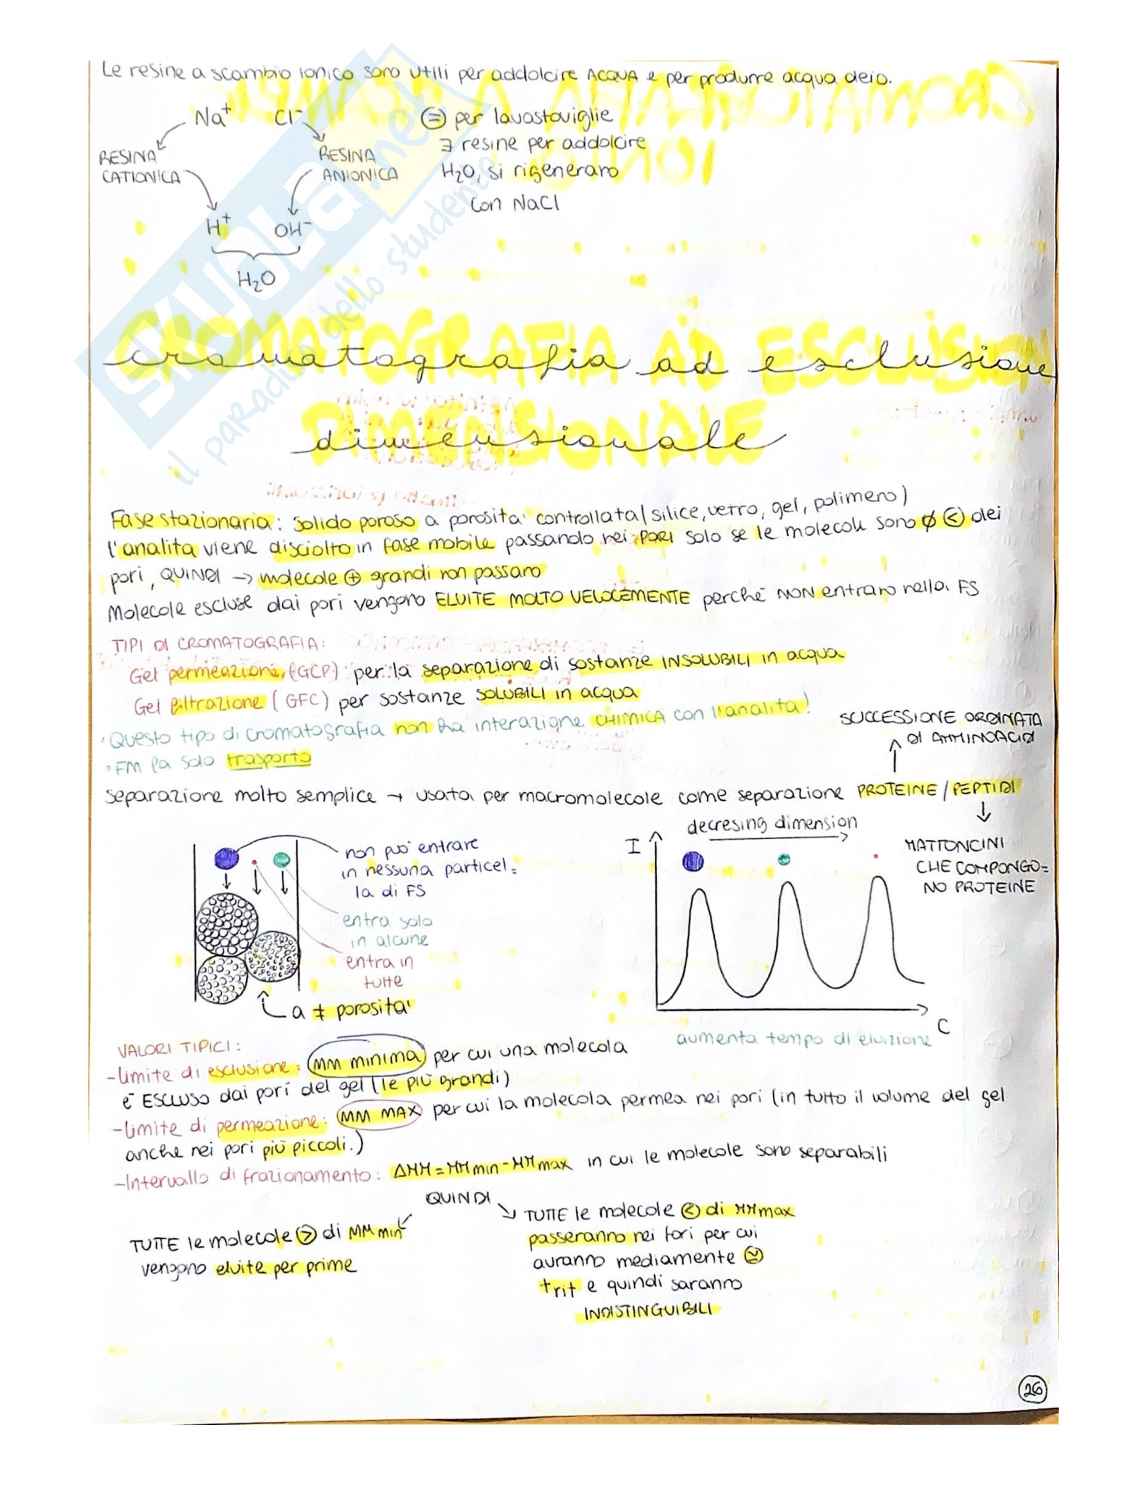 Le resine a scambio ionico sono utili per addolcire ACQUA e per produrre acqua deio.
Na⁺ Cl⁻
RESINA CATIONICA
RESINA ANIONICA
H⁺ OH⁻
H₂O
(=) per lavastoviglie
∃ resine per addolcire
H₂O, si rigenerano
con NaCl
cromatografia ad esclusione
dimensionale
Fase stazionaria: solido poroso a porosita' controllata (silice, vetro, gel, polimero)
l'analita viene disciolto in fase mobile passando nei PORI solo se le molecole sono ϕ < dei
pori, QUINDI → molecole ⊕ grandi non passano
Molecole escluse dai pori vengono ELUITE MOLTO VELOCEMENTE perchè NON entrano nella FS
TIPI DI CROMATOGRAFIA:
Gel permeazione (GCP) per la separazione di sostanze INSOLUBILI in acqua
Gel filtrazione (GFC) per sostanze SOLUBILI in acqua
·Questo tipo di cromatografia non ha interazione CHIMICA con l'analita!
·FM fa solo trasporto
SUCCESSIONE ORDINATA
DI AMMINOACIDI
separazione molto semplice → usata per macromolecole come separazione PROTEINE/PEPTIDI
MATTONCINI
CHE COMPONGO=
NO PROTEINE
non può entrare
in nessuna particel=
la di FS
entra solo
in alcune
entra in
tutte
a ≠ porosita'
decresing dimension
I
C
aumenta tempo di eluizione
VALORI TIPICI:
-Limite di esclusione: MM MINIMA per cui una molecola
è ESCLUSO dai pori del gel (le più grandi)
-Limite di permeazione: MM MAX per cui la molecola permea nei pori (in tutto il volume del gel
anche nei pori più piccoli.)
-Intervallo di frazionamento: ΔMM = MMmin - MMmax in cui le molecole sono separabili
QUINDI
TUTTE le molecole > di MMmin
vengono eluite per prime
TUTTE le molecole < di MMmax
passeranno nei fori per cui
avranno mediamente
trit e quindi saranno
INDISTINGUIBILI
26
SKUOLA.net
il paradiso dello studente